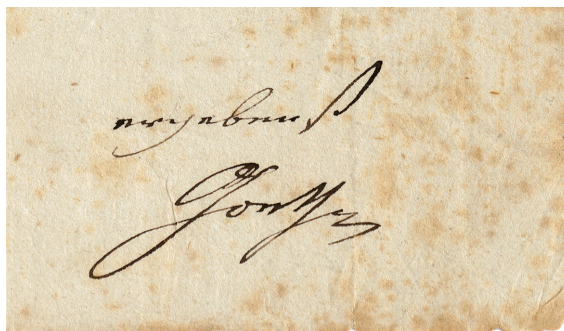 ergebenst
Goethe